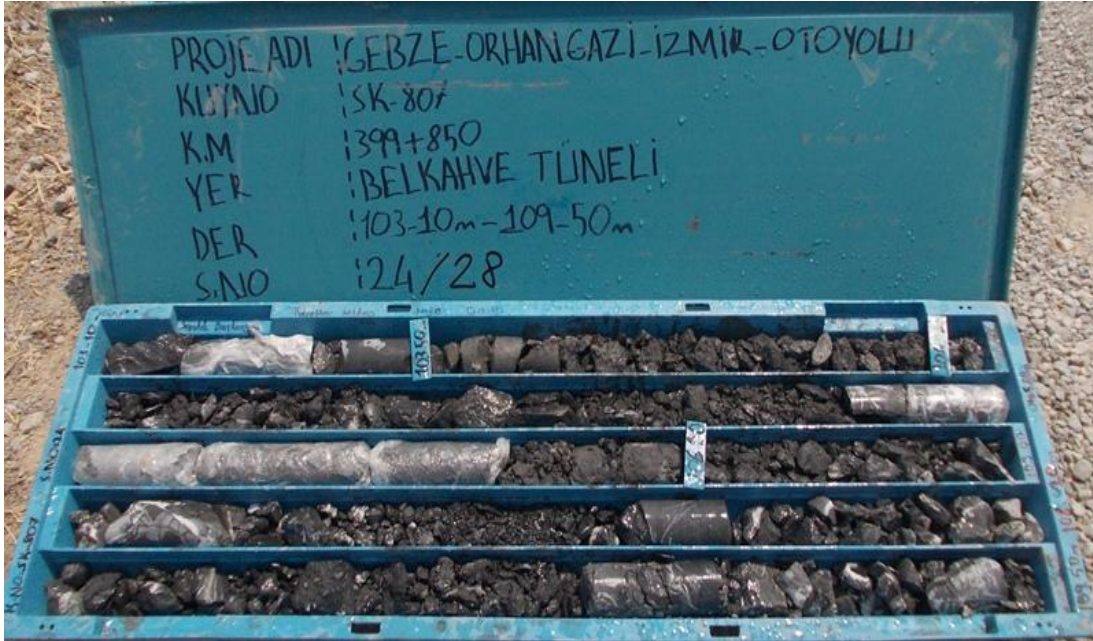 PROJE ADI : GEBZE-ORHANGAZİ-İZMİR-OTOYOLU
KUYNO : SK-807
K.M : 399+850
YER : BELKAHVE TÜNELİ
DER : 103-10m-109-50m
S.NO : 24/28
103-10
10350
S.NO 24
K.NO-SK-807
109.50m